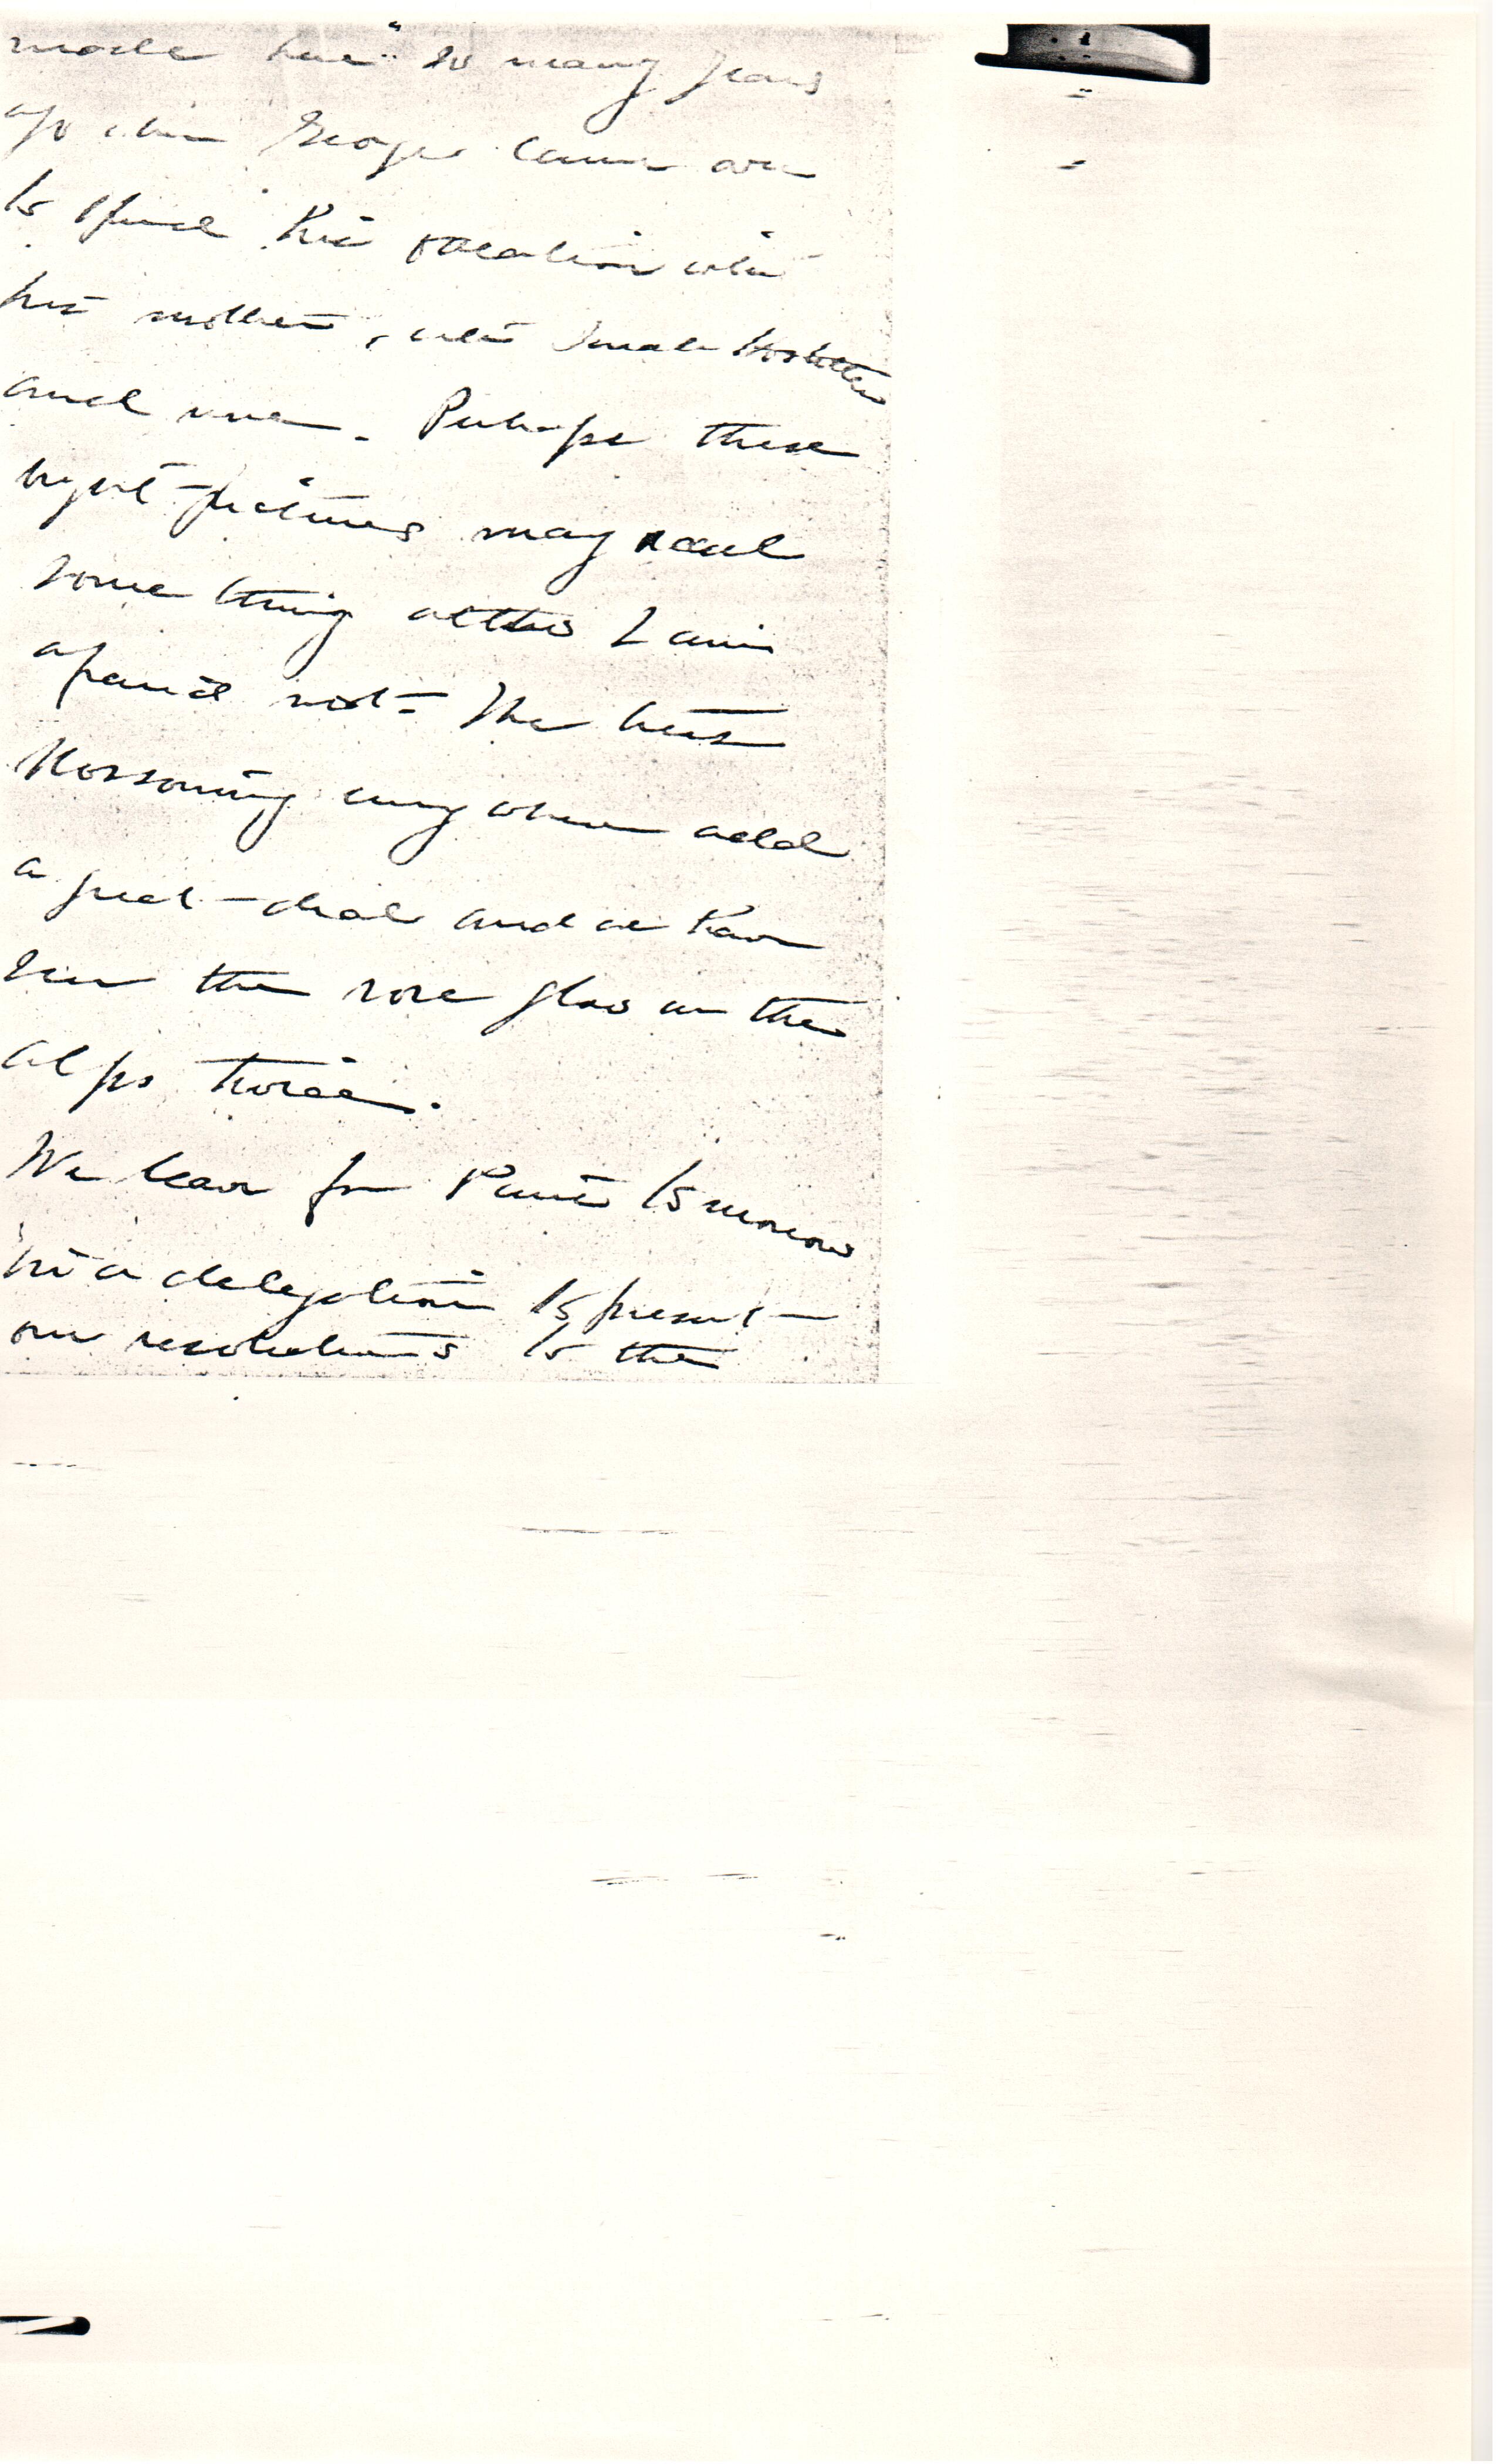 made here" so many years
ago when George came over
to spend his vacation with
his mother, with Sarah Hostetter
and me. Perhaps these
 pictures may recall
something altho I am
afraid not – The trees
blossoming everywhere add
a great – deal and we have
seen the rose glow on the
alps twice.
We leave for Paris tomorrow
 a delegation to present –
our resolutions to the